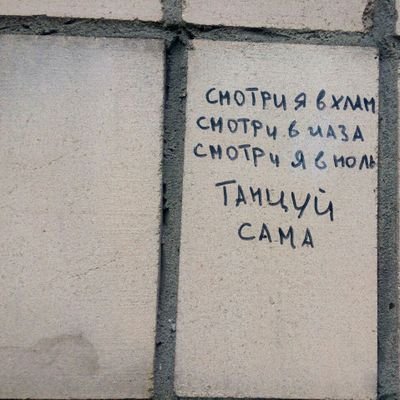 СМОТРИ Я В ХЛАМ
СМОТРИ В ГЛАЗА
СМОТРИ Я В НОЛЬ
ТАНЦУЙ
САМА